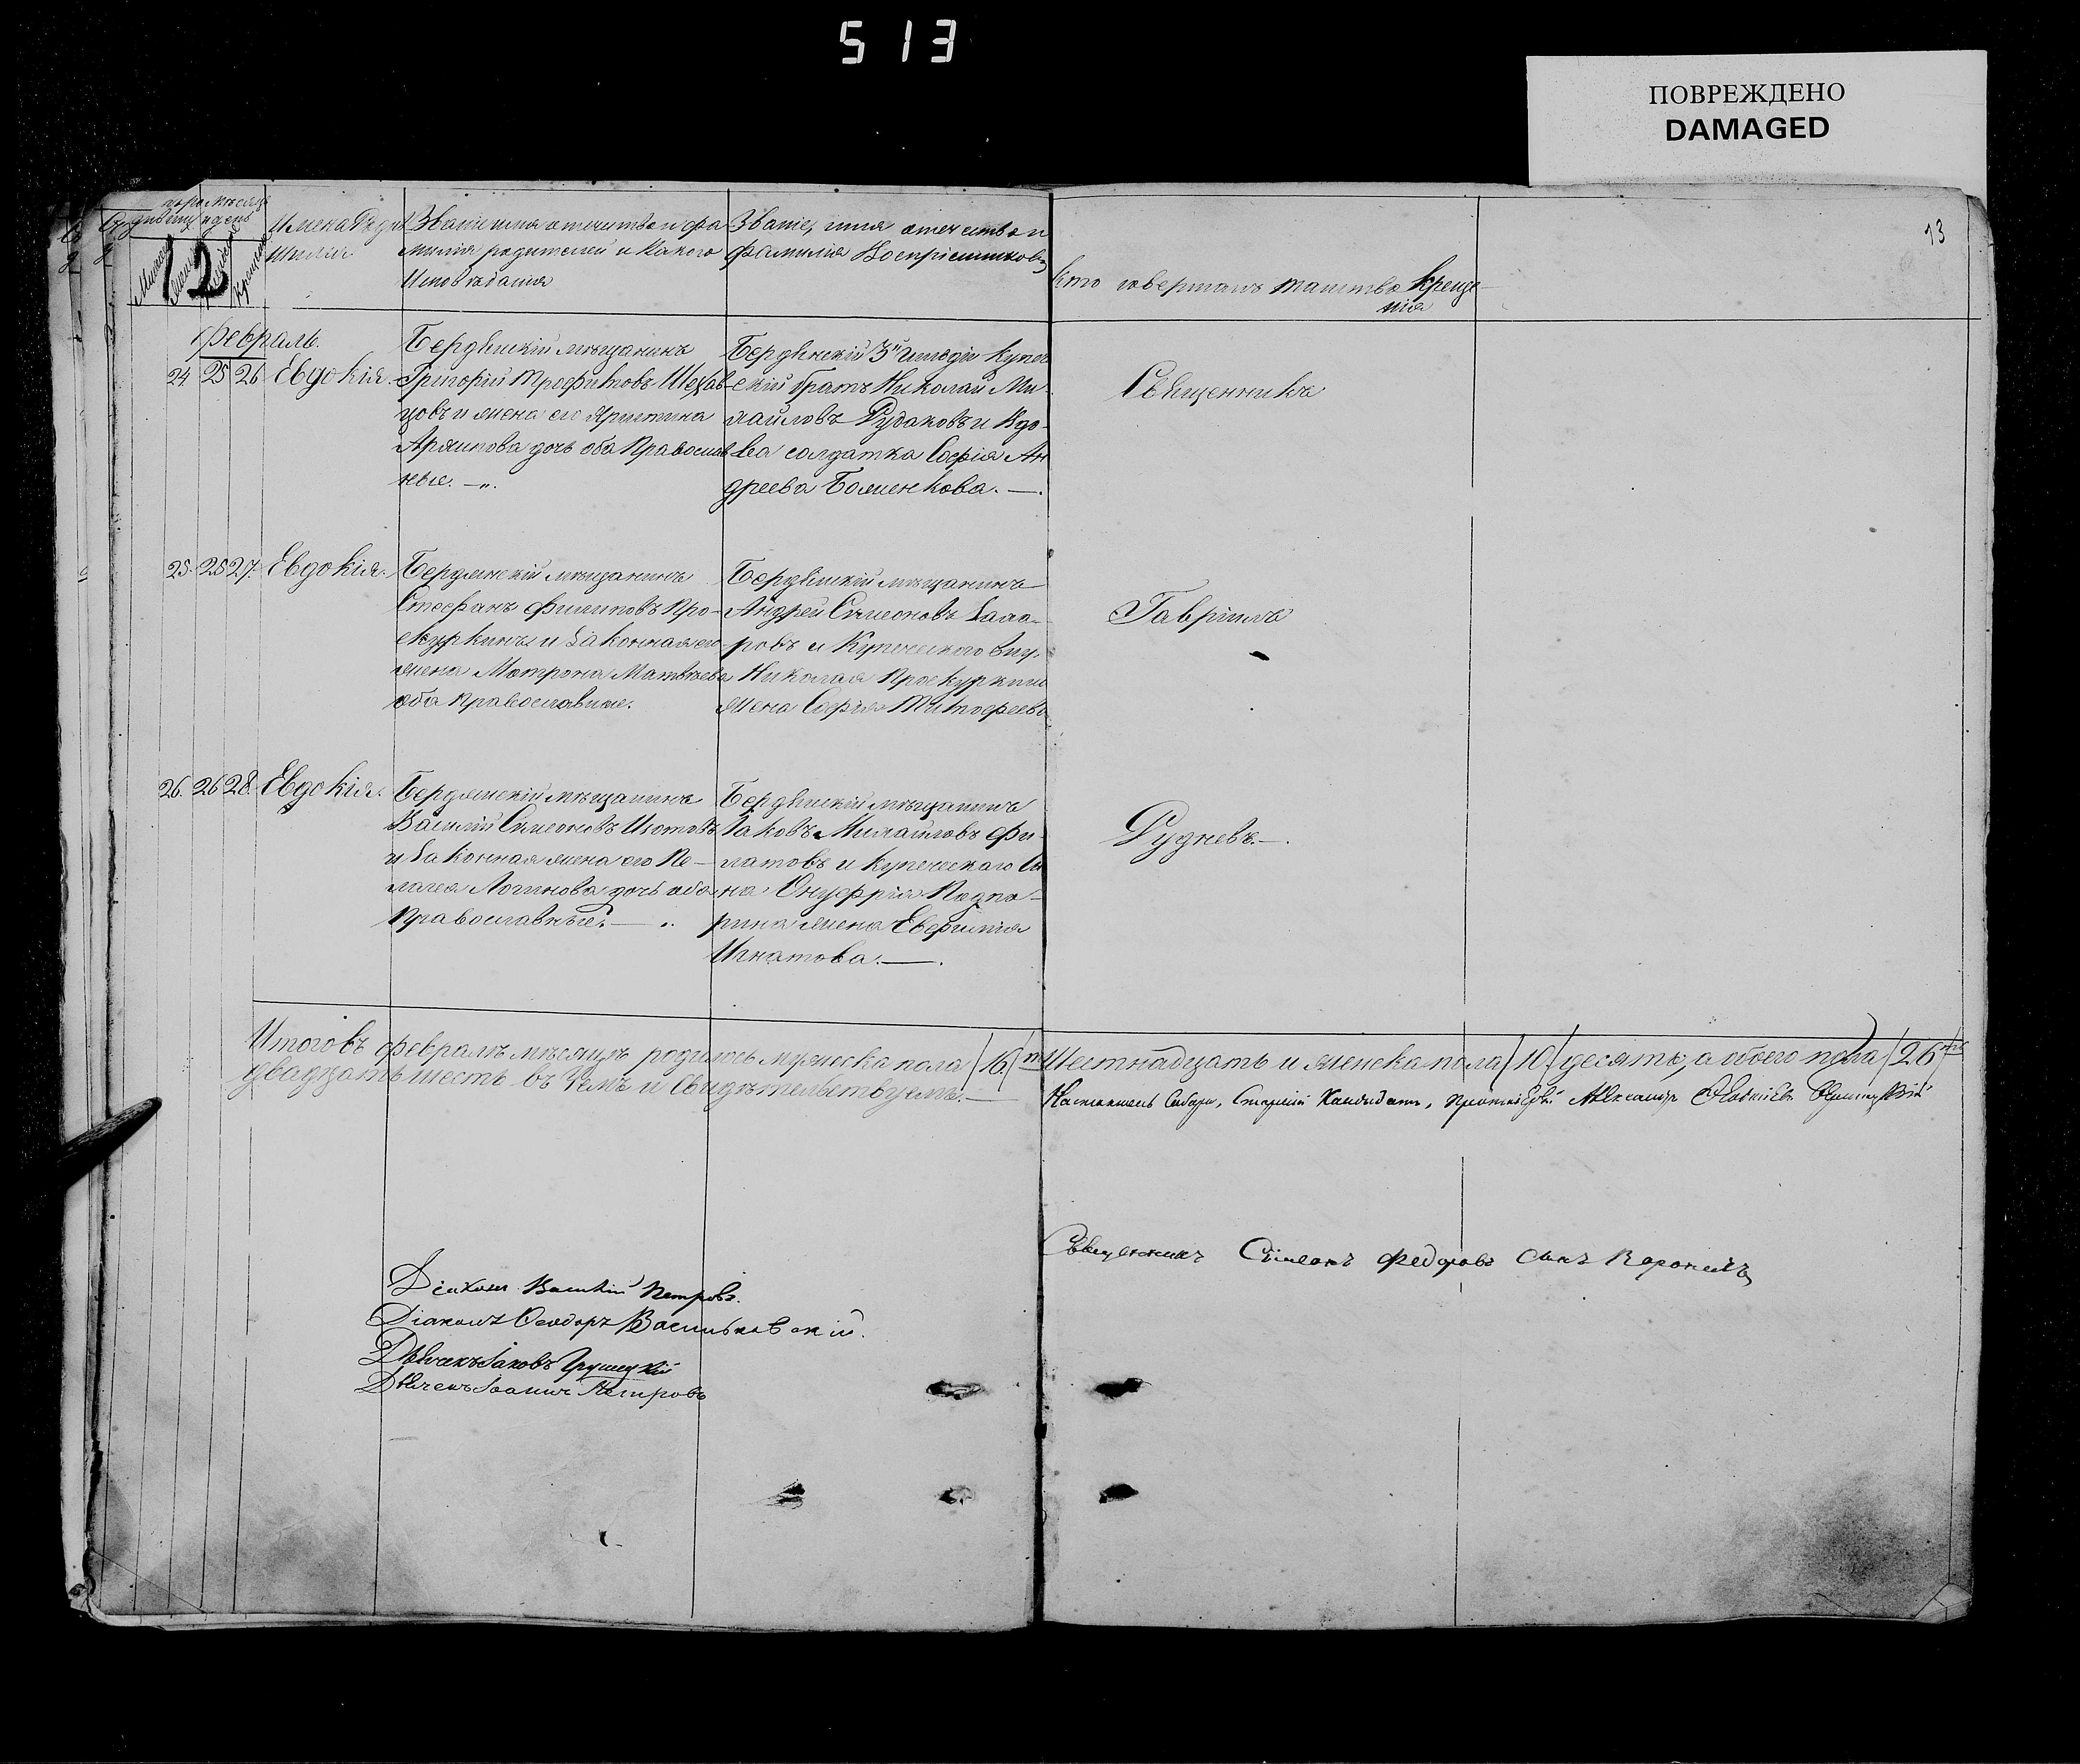 513
ПОВРЕЖДЕНО
DAMAGED
13
12
Имена Роди
Званіе имя отчиство и фа
милія родителей и какого
Исповѣданія
Званіе, имя отечество и
фамилія Воспріемниковъ
Кто совершалъ таинство Креще
нія
Февраль.
24 25 26 Евдокія.
Бердянскій мѣщанинъ
Григорій Трофимовъ
цовъ и жена его Христина
Архипова дочь оба Православ
ные.
Бердянскій 3й гильдіи купеч
ескій братъ Николай Ми
хайловъ Рудаковъ и Вдо
ва солдатка Софія Ан
дреева Боженкова.
Священникъ
25. 25 27. Евдокія.
Бердянскій мѣщанинъ
Стефанъ Филиповъ Про-
скуркинъ и Законная его
жена Матрона Матвѣева
оба православные.
Бердянскій мѣщанинъ
Андрей Симеоновъ
ровъ и Купеческаго
Николая Проскуркина
жена Софія Тимофеева
Гавріилъ
26. 26 28. Евдокія.
Бердянскій мѣщанинъ
Василій Симеоновъ Изотовъ
и Законная жена его Пе-
лагея Логинова дочь оба
Православные.
Бердянскій мѣщанинъ
Іаковъ Михайловъ Фи-
латовъ и купеческаго Сы
на Онуфрія Подпо-
рина жена Евфимія
Игнатова.
Рудневъ.
Итого въ февралѣ мѣсяцѣ родилось мужеска пола /16/ Шестнадцать и женска пола /10/ десять, а обоего пола /26/
двадцать шесть въ чемъ и Свидѣтельствуемъ.
Настоятель Собора, Старшій Кандидатъ, Протоіерей Александръ
Священникъ Симеонъ Федоровъ сынъ
Діаконъ Василій Петровъ.
Діаконъ Феодоръ Васильковскій.
Дьячекъ Іаковъ Грушецкій
Дьячекъ Іоаннъ Петровъ